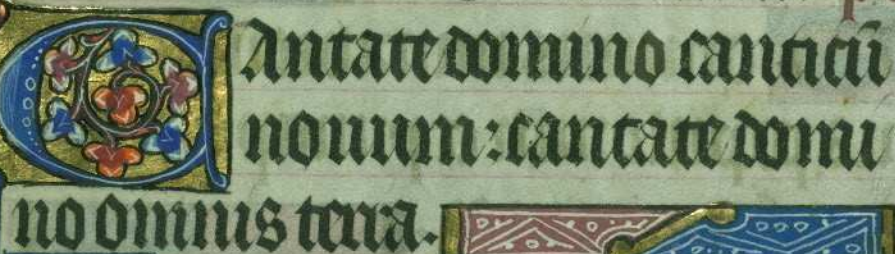 CAntate domino canticū
nouum: cantate domi
no omnis terra.